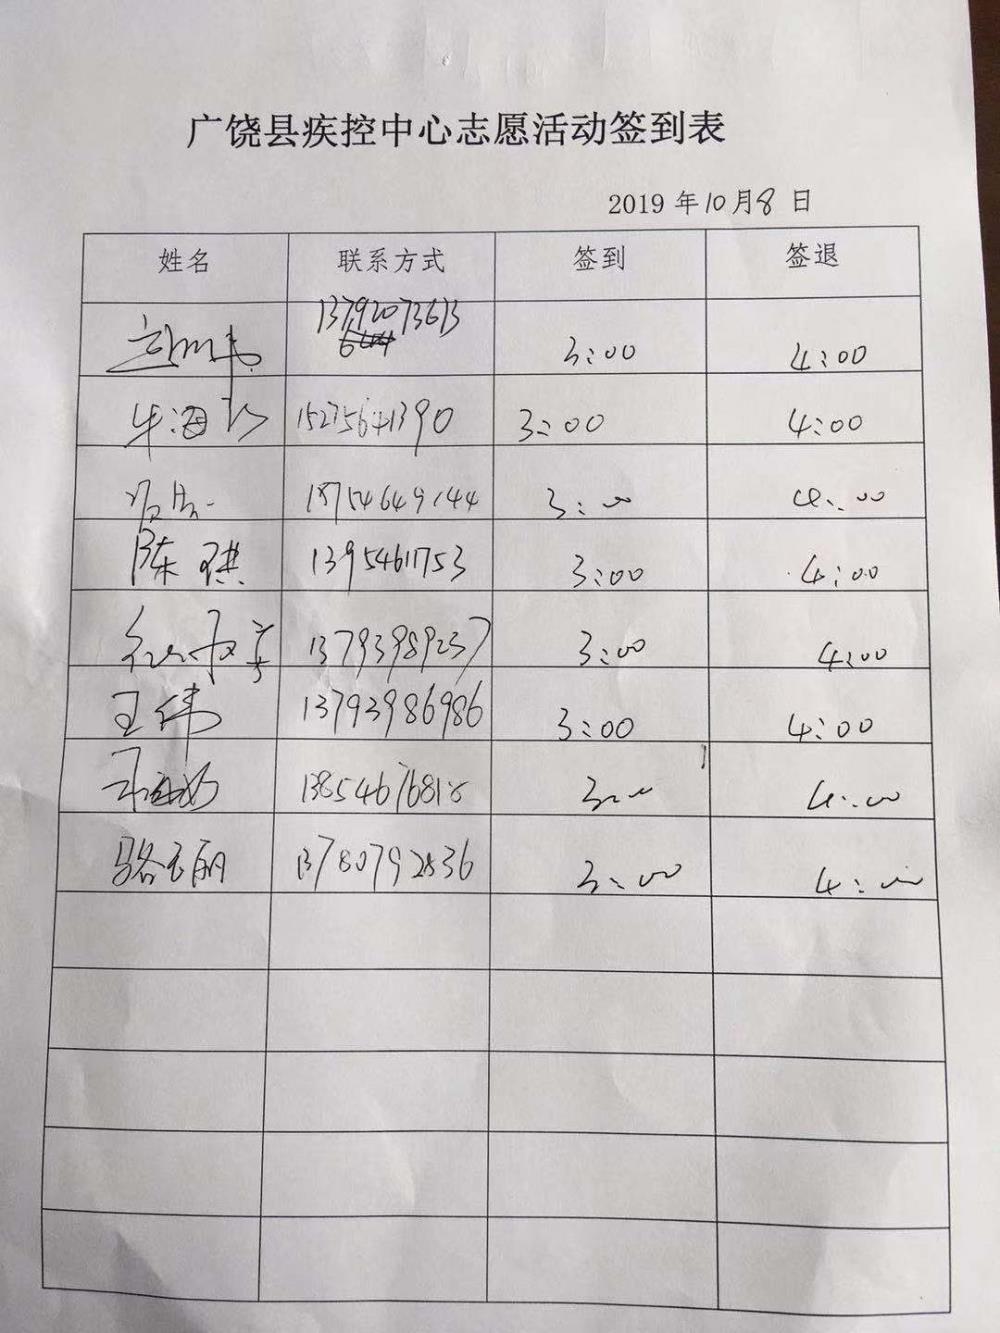 广饶县疾控中心志愿活动签到表
2019 年 10 月 8 日
姓名 联系方式 签到 签退
13792073613 3:00 4:00
牛海 15275641390 3:00 4:00
18754649144 3:00 4:00
陈琪 13954611753 3:00 4:00
13793989237 3:00 4:00
王伟 13793986986 3:00 4:00
3:00 4:00
骆玉丽 13780792836 3:00 4:00